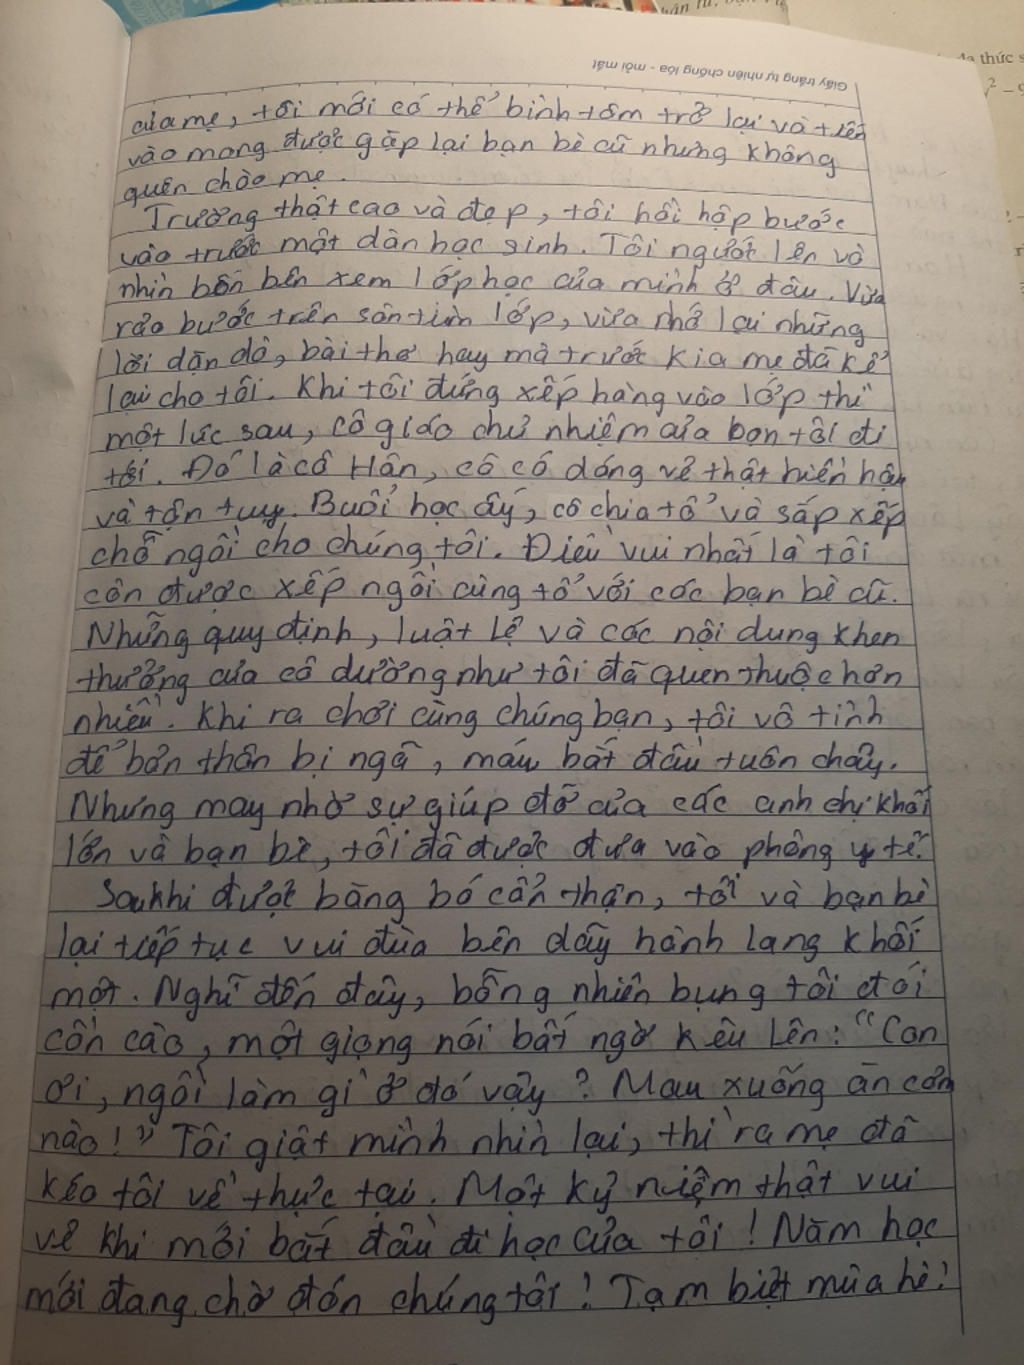 Giấy trắng tự nhiên chống lóa - mỏi mắt
của mẹ, tôi mới có thể bình tâm trở lại và tiến
vào mong được gặp lại bạn bè cũ nhưng không
quên chào mẹ.
Trường thật cao và đẹp, tôi hồi hộp bước
vào trước một dàn học sinh. Tôi ngước lên và
nhìn bốn bên xem lớp học của mình ở đâu. Vừa
rảo bước trên sân tìm lớp, vừa nhớ lại những
lời dặn dò, bài thơ hay mà trước kia mẹ đã kể
lại cho tôi. Khi tôi đứng xếp hàng vào lớp thì
một lúc sau, cô giáo chủ nhiệm của bọn tôi đi
tới. Đó là cô Hân, cô có dáng vẻ thật hiền hậu
và tận tụy. Buổi học ấy, cô chia tổ và sắp xếp
chỗ ngồi cho chúng tôi. Điều vui nhất là tôi
còn được xếp ngồi cùng tổ với các bạn bè cũ.
Những quy định, luật lệ và các nội dung khen
thưởng của cô dường như tôi đã quen thuộc hơn
nhiều. Khi ra chơi cùng chúng bạn, tôi vô tình
để bản thân bị ngã, máu bắt đầu tuôn chảy.
Nhưng may nhờ sự giúp đỡ của các anh chị khối
lớn và bạn bè, tôi đã được đưa vào phòng y tế.
Sau khi được băng bó cẩn thận, tôi và bạn bè
lại tiếp tục vui đùa bên dãy hành lang khối
một. Nghĩ đến đây, bỗng nhiên bụng tôi đói
cồn cào, một giọng nói bất ngờ kêu lên: "Con
ơi, ngồi làm gì ở đó vậy? Mau xuống ăn cơm
nào!" Tôi giật mình nhìn lại, thì ra mẹ đã
kéo tôi về thực tại. Một kỷ niệm thật vui
vẻ khi mới bắt đầu đi học của tôi! Năm học
mới đang chờ đón chúng tôi! Tạm biệt mùa hè!